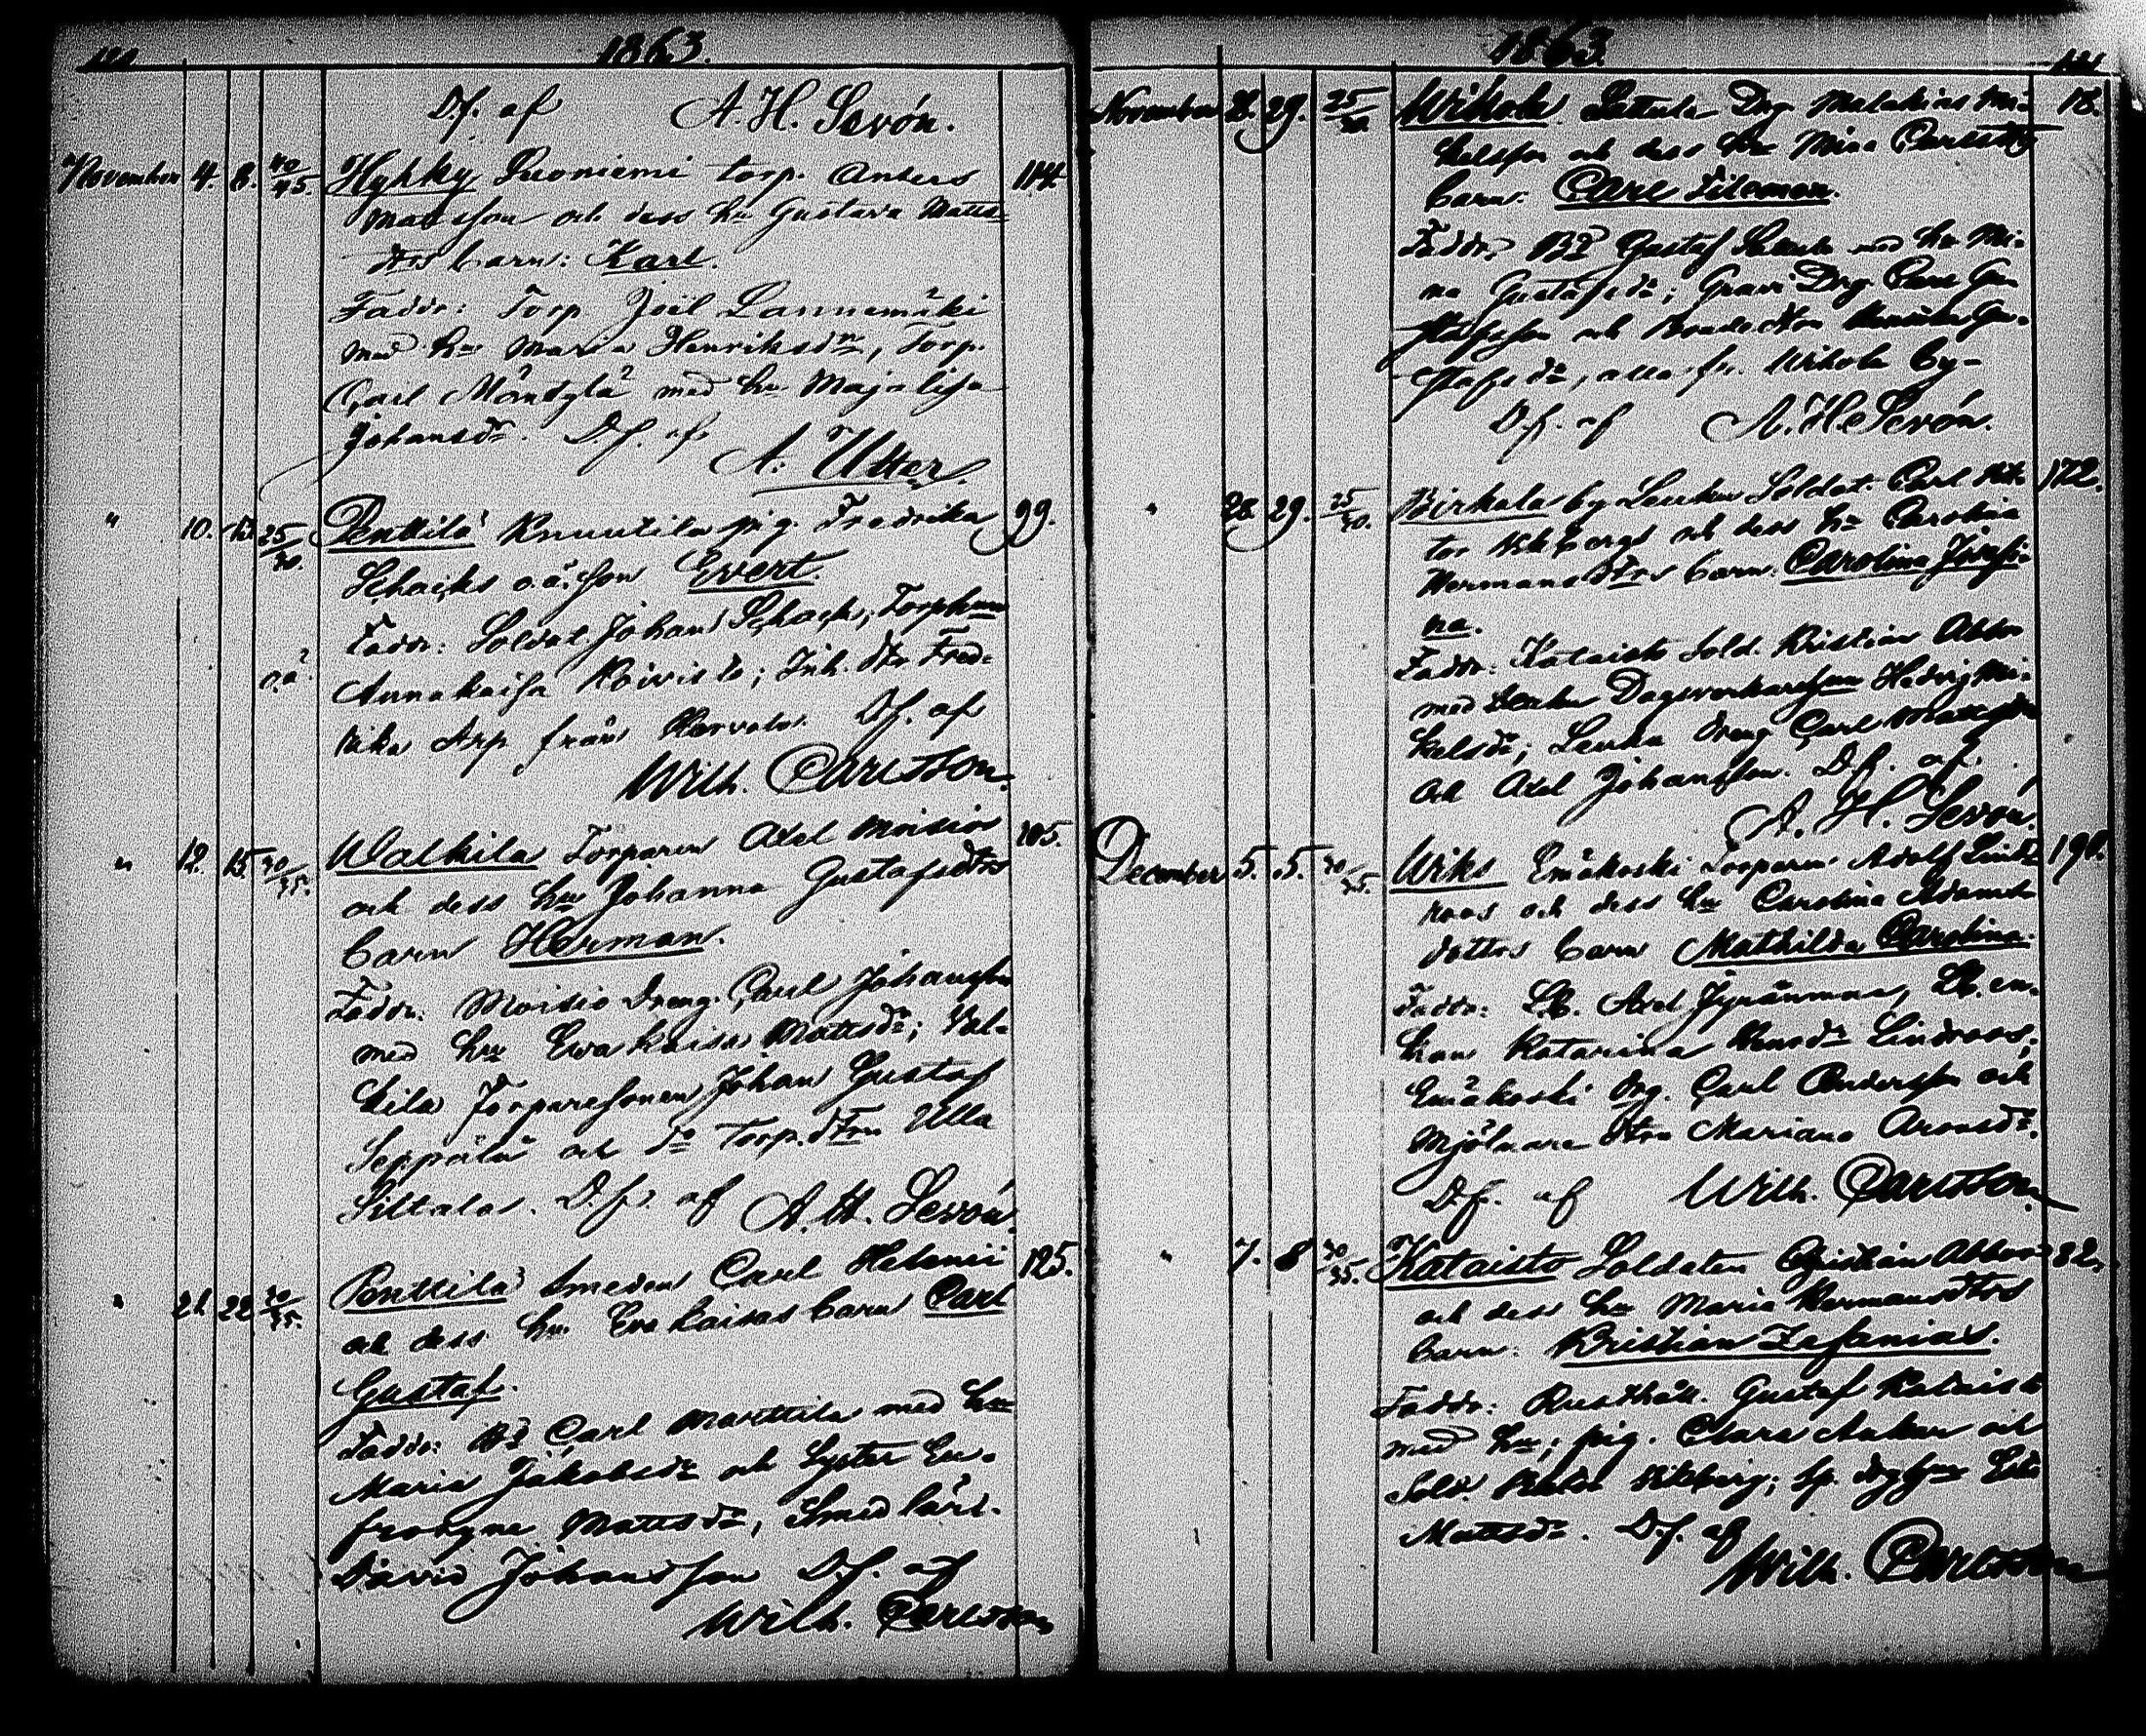 1863.
D.f. af A. H. Sevón.
November 4. 8. 40/45. Hyhky Suoniemi torp. Anders 114.
Matsson och dess hu Gustava Matts=
dtrs barn: Karl.
Faddr: Torp. Joel Lannemäki
med hu Maria Henriksdr, Torp.
Carl Mäntylä med hu Majalisa
Johansdr. D.f. af
A. Utter.
" 10. 25/30. Penttilä Knuutila pig. Fredrika 99.
Schacks o.ä. son Evert.
Faddr: Soldat Johan Schack; Torphun
o.ä. Annakaisa Koivisto; Inh. dtr Fred=
rika Arp från Kervola. D.f. af
Wilh. Carlsson.
" 12. 15. 30/35. Walkila Torparen Axel Moisio 105.
och dess hu Johanna Gustafsdtrs
barn Herman.
Faddr: Moisio Dreng Carl Johansson
med hu Evakaisa Mattsdr; Val=
kila Torparesonen Johan Gustaf
Seppälä och do Torp.dtrn Ulla
Siltala. D.f. af A. H. Sevón.
" 21. 22. 30/35. Penttilä Smeden Carl Helenii 125.
och dess hu Eva Kaisas barn Carl
Gustaf.
Faddr: Bd Carl Marttila med hu
Maria Jakobsdr och Syster Eu=
frosyne Mattsdr, Smedlärl.
David Johansson D.f. af
Wilh. Carlsson
1863. 121
November 28. 29. 25/30. Wihola Dr. Malakias Mi= 18.
kelsson och dess hu Mina Carlsdtrs
barn: Carl Filemon.
Faddr. Bd Gustaf med hu Mi=
na Gustafsdr; Drg. Carl Gu=
stafsson och Bonde dtrn Gu=
stafsdr, alla fr. Wihola by=
D.f. af A. H. Sevón.
" 28. 29. 25/30. Pirkala by Soldat. Carl Vik= 172.
tor Vikberg och dess hu Carolina
Hermansdtrs barn: Carolina Josefi=
na.
Faddr: Kataisto Sold. Kristian Abbor
med Dagsverkarehun Hedvig Mi=
kelsdr; Dreng Carl Mattsson
och Axel Johansson. D.f. af
A. H. Sevón.
December 5. 5. 30/35. Wiks Emäkoski Torparen Adolf Lind= 190.
roos och dess hu Carolina Adams
dotters barn Mathilda Carolina.
Faddr: Axel Jyränmaa, en=
kan Katarina Lindroos;
Emäkoski drg. Carl Andersson och
Mjölnare dtrn Mariana Aronsdr.
D.f. af Wilh. Carlsson.
" 7. 8 30/35. Kataisto Soldaten Christian Abbor 82.
och dess hu Maria Hermansdtrs
barn: Kristian Zefanias.
Faddr: Rusthåll. Gustaf Kataisto
med hu; pig. Clara och
Sold. Vikberg;
Mattsdr. D.f. af
Wilh. Carlsson